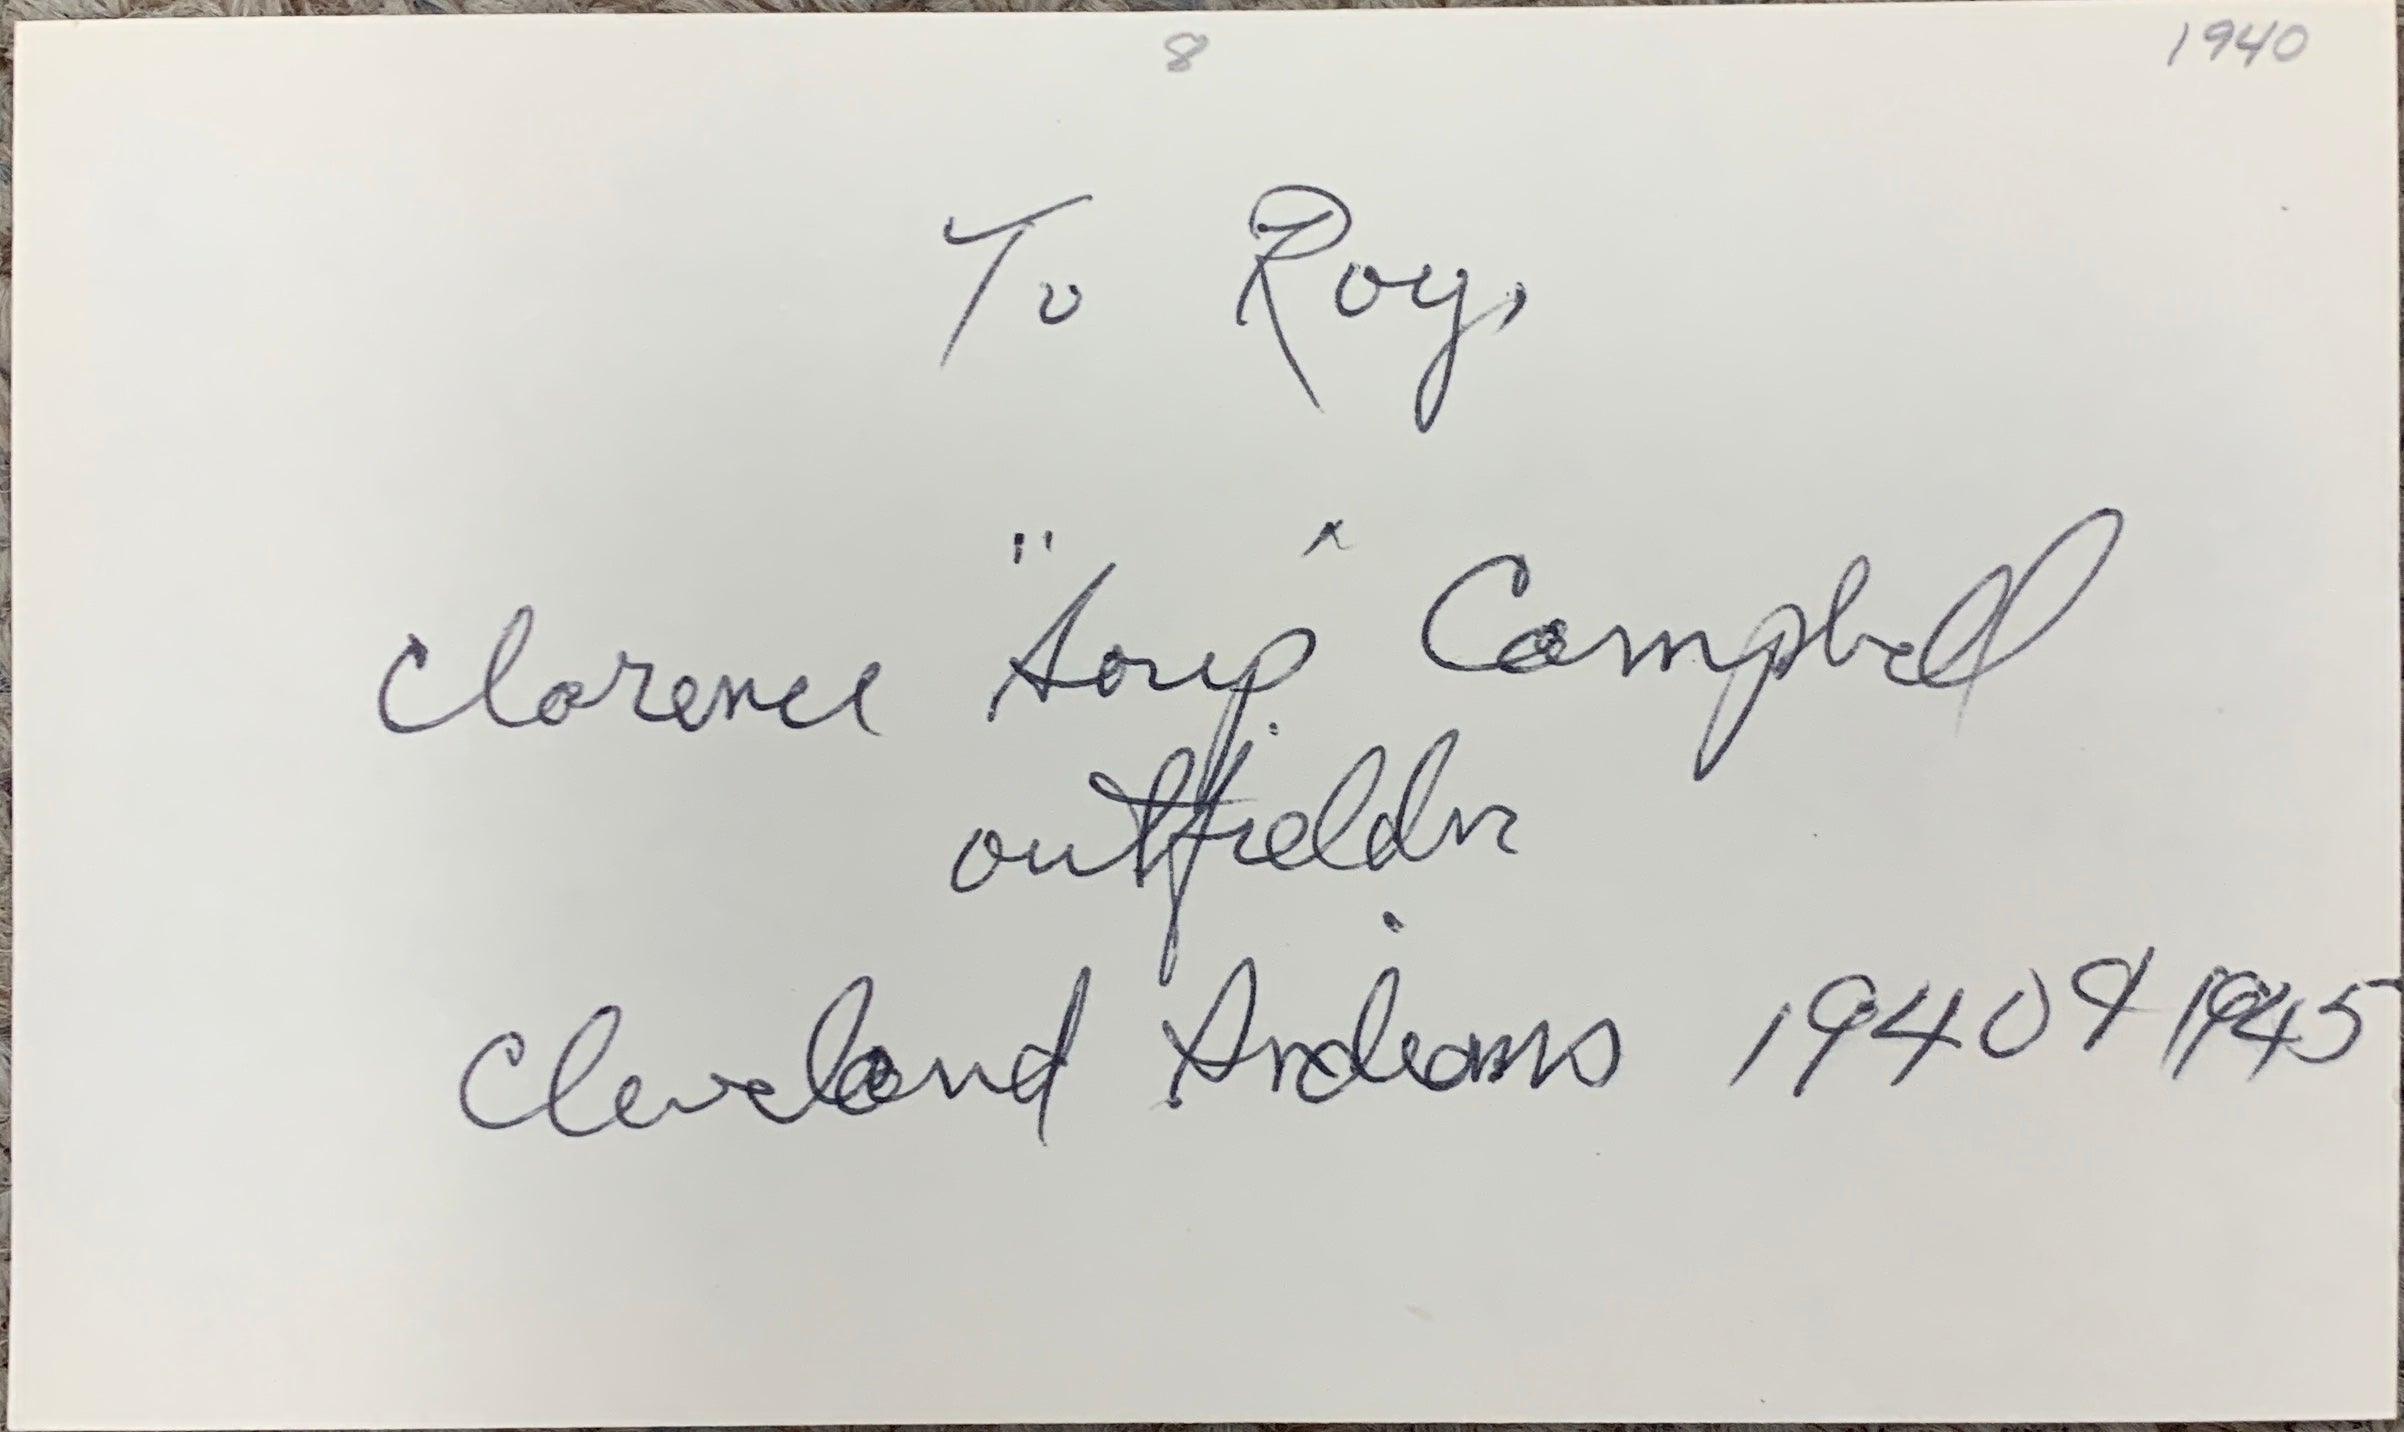 8 1940
To Roy,
Clarence "Soup" Campbell
outfielder
Cleveland Indians 1940 & 1945